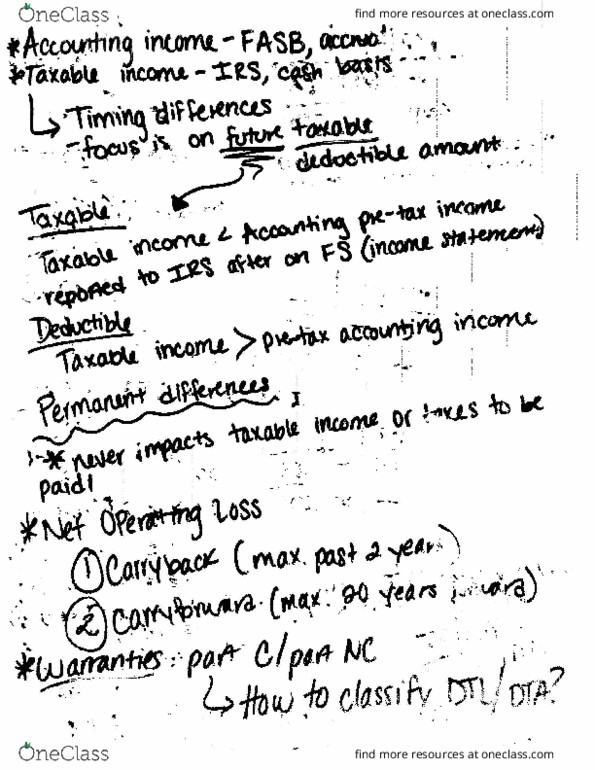 OneClass
find more resources at oneclass.com
*Accounting income - FASB, accrual
*Taxable income - IRS, cash basis
Timing differences
- focus is on future taxable
deductible amount
Taxable
Taxable income < Accounting pre-tax income
- reported to IRS after on FS (income statement)
Deductible
Taxable income > pre-tax accounting income
Permanent differences
* never impacts taxable income or taxes to be
paid!
*Net Operating Loss
① Carryback (max. past 2 years)
② Carryforward (max. 20 years
*Warranties: part C/part NC
How to classify DTL/DTA?
OneClass
find more resources at oneclass.com